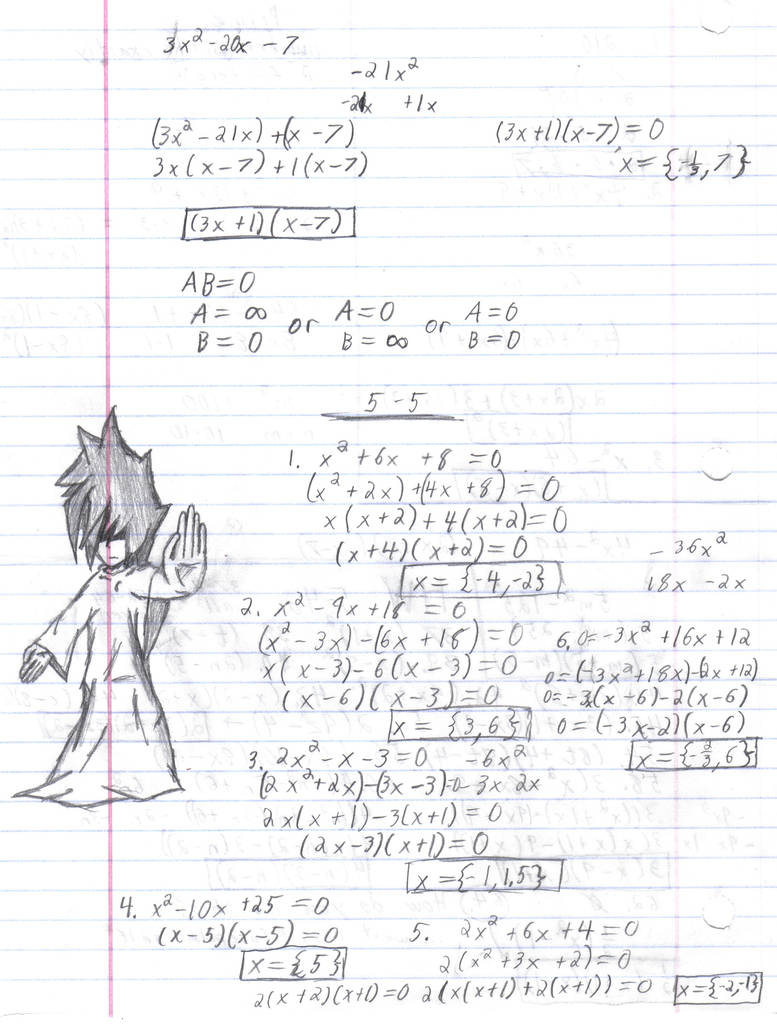 3x² - 20x - 7
-21x²
-21x +1x
(3x² - 21x) + (x - 7)
3x(x - 7) + 1(x - 7)
(3x + 1)(x - 7)
(3x + 1)(x - 7) = 0
x = {-1/3, 7}
AB = 0
A = ∞ or A = 0 or A = 0
B = 0 B = ∞ B = 0
5 - 5
1. x² + 6x + 8 = 0
(x² + 2x) + (4x + 8) = 0
x(x + 2) + 4(x + 2) = 0
(x + 4)(x + 2) = 0
x = {-4, -2}
2. x² - 9x + 18 = 0
(x² - 3x) - (6x + 18) = 0
x(x - 3) - 6(x - 3) = 0
(x - 6)(x - 3) = 0
x = {3, 6}
-36x²
18x -2x
6. 0 = -3x² + 16x + 12
0 = (-3x² + 18x) - (2x + 12)
0 = -3(x + 6) - 2(x - 6)
0 = (-3x - 2)(x - 6)
x = {-2/3, 6}
3. 2x² - x - 3 = 0 -6x²
(2x² + 2x) - (3x - 3) = 0 -3x 2x
2x(x + 1) - 3(x + 1) = 0
(2x - 3)(x + 1) = 0
x = {-1, 1.5}
4. x² - 10x + 25 = 0
(x - 5)(x - 5) = 0
x = {5}
5. 2x² + 6x + 4 = 0
2(x² + 3x + 2) = 0
2(x + 2)(x + 1) = 0 2(x(x + 1) + 2(x + 1)) = 0 x = {-2, -1}